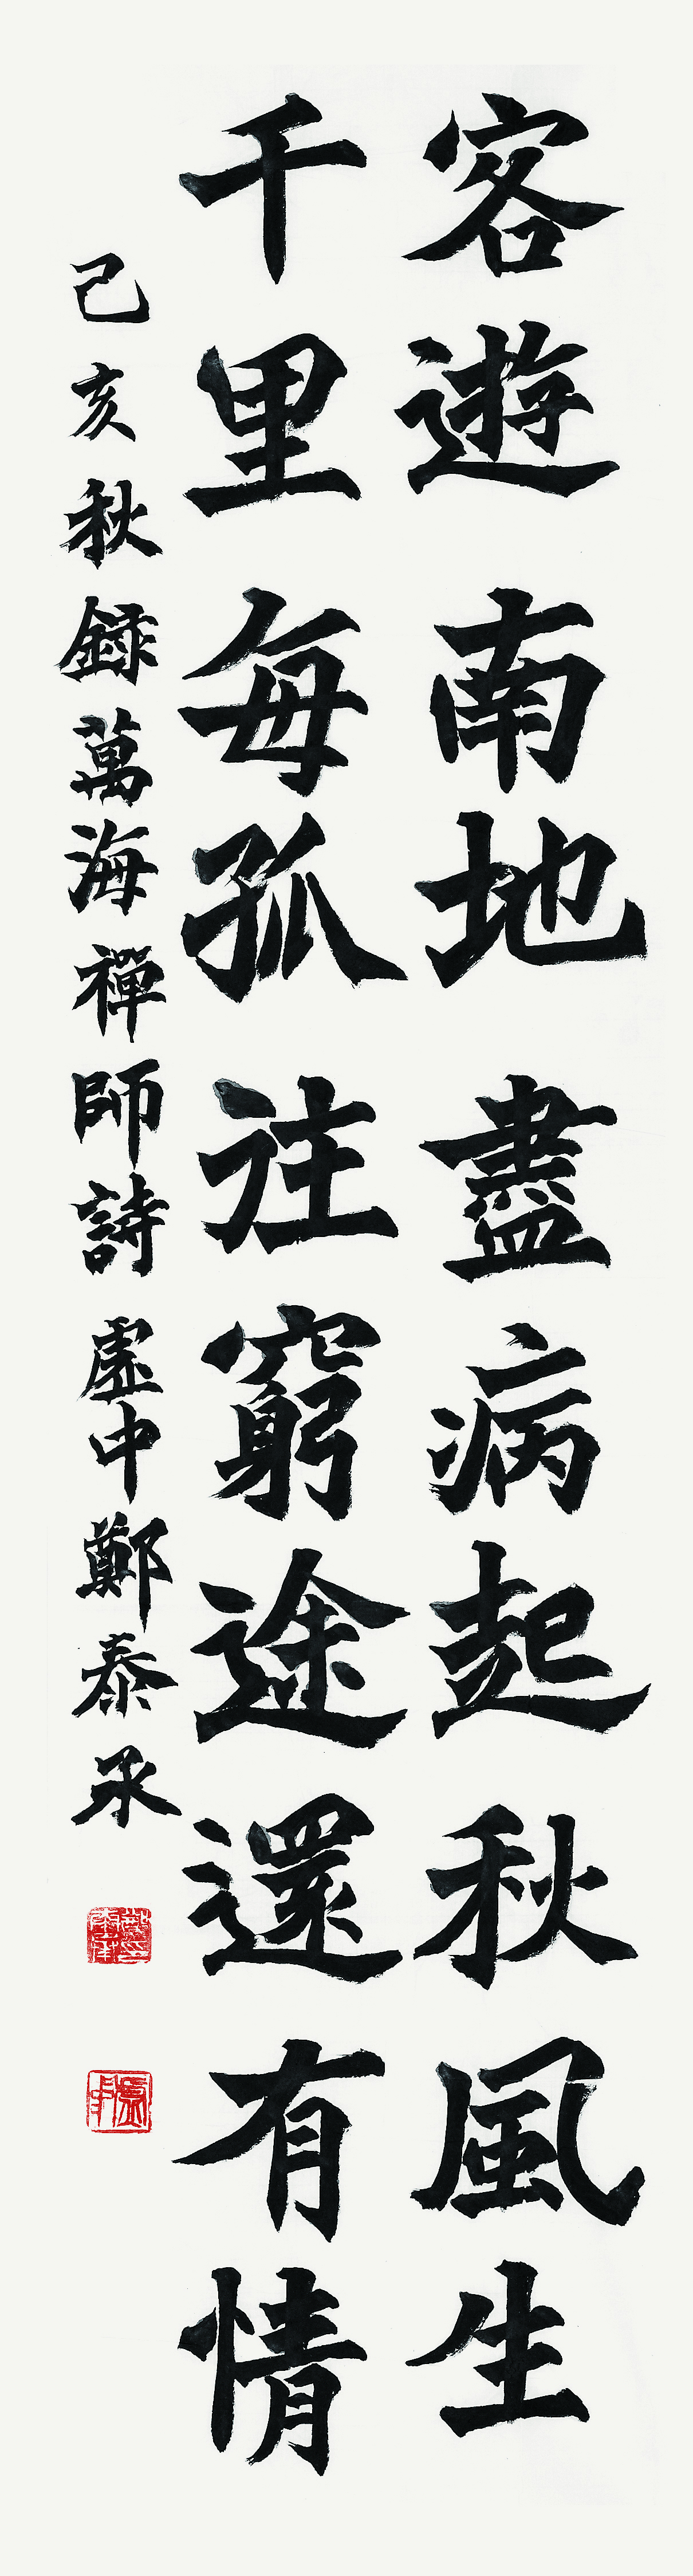 客遊南地盡病起秋風生
千里每孤往窮途還有情
己亥秋錄萬海禪師詩 虛中鄭泰承